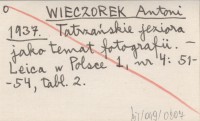 WIECZOREK Antoni
1937. Tatrzańskie jeziora
jako temat fotografii. -
Leica w Polsce 1, nr 4: 51-
-54, tabl. 2.